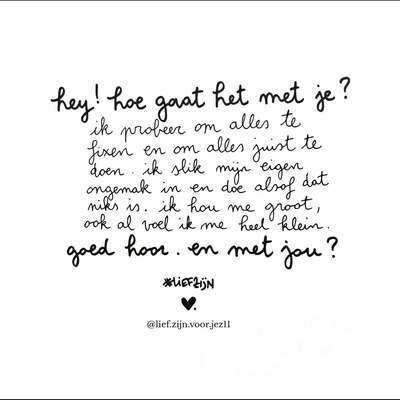 hey! hoe gaat het met je?
ik probeer om alles te
fixen en om alles juist te
doen. ik slik mijn eigen
ongemak in en doe alsof dat
niks is. ik hou me groot,
ook al voel ik me heel klein.
goed hoor. en met jou?
#LIEFZIJN
@lief.zijn.voor.jez11